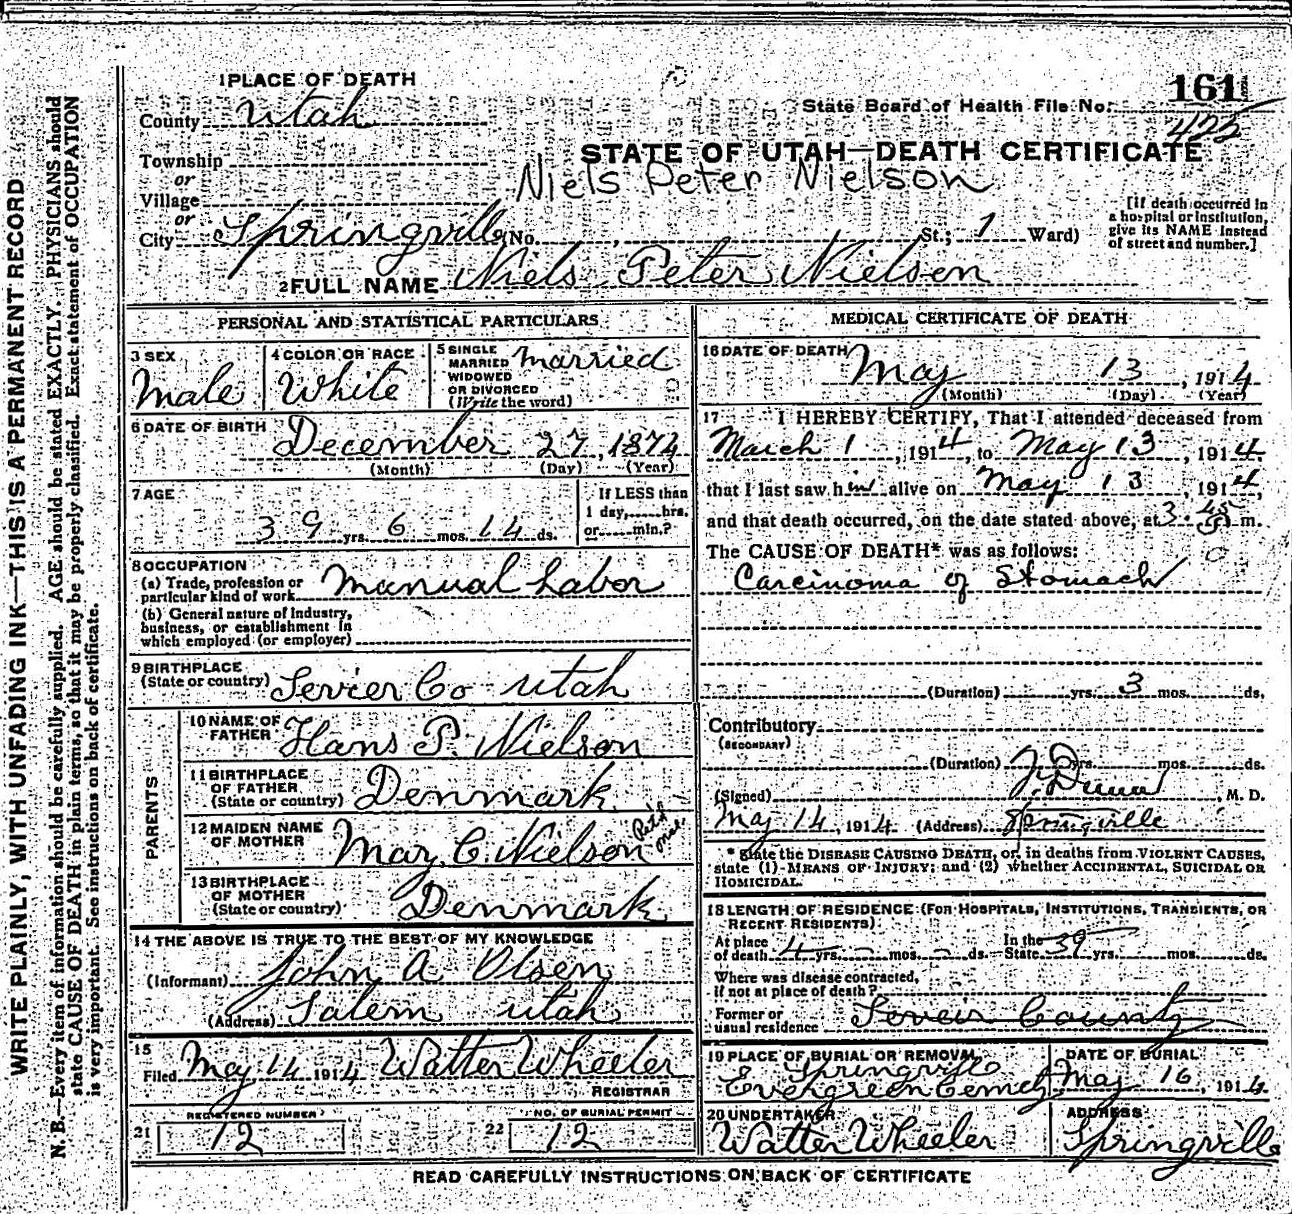 161
State Board of Health File No.
425
1 PLACE OF DEATH
County Utah
Township
or
Village
or
City Springville No. , St.; 1 Ward)
STATE OF UTAH—DEATH CERTIFICATE
Niels Peter Nielson
[If death occurred in
a hospital or institution,
give its NAME instead
of street and number.]
2 FULL NAME Niels Peter Nielson
PERSONAL AND STATISTICAL PARTICULARS
3 SEX
Male
4 COLOR OR RACE
White
5 SINGLE
MARRIED
WIDOWED
OR DIVORCED
(Write the word)
married
6 DATE OF BIRTH
December 27, 1874
(Month) (Day) (Year)
7 AGE
39 yrs. 6 mos. 14 ds.
If LESS than
1 day, hrs.
or min.?
8 OCCUPATION
(a) Trade, profession or
particular kind of work Manual Labor
(b) General nature of Industry,
business, or establishment in
which employed (or employer)
9 BIRTHPLACE
(State or country) Sevier Co Utah
PARENTS
10 NAME OF
FATHER Hans P. Nielson
11 BIRTHPLACE
OF FATHER
(State or country) Denmark
12 MAIDEN NAME
OF MOTHER Mary C. Nielson
13 BIRTHPLACE
OF MOTHER
(State or country) Denmark
14 THE ABOVE IS TRUE TO THE BEST OF MY KNOWLEDGE
(Informant) John A Olsen
(Address) Salem Utah
15
Filed May 14 1914 Walter Wheeler
REGISTRAR
REGISTERED NUMBER
21 12
NO. OF BURIAL PERMIT
22 12
MEDICAL CERTIFICATE OF DEATH
16 DATE OF DEATH
May 13, 1914
(Month) (Day) (Year)
17 I HEREBY CERTIFY, That I attended deceased from
March 1, 1914, to May 13, 1914.
that I last saw him alive on May 13, 1914,
and that death occurred, on the date stated above, at 3.45 m.
The CAUSE OF DEATH* was as follows:
Carcinoma of Stomach
(Duration) yrs. 3 mos. ds.
Contributory
(SECONDARY)
(Duration) yrs. mos. ds.
(Signed) , M. D.
May 14, 1914 (Address) Springville
* State the DISEASE CAUSING DEATH, or, in deaths from VIOLENT CAUSES,
state (1) MEANS OF INJURY; and (2) whether ACCIDENTAL, SUICIDAL OR
HOMICIDAL.
18 LENGTH OF RESIDENCE (FOR HOSPITALS, INSTITUTIONS, TRANSIENTS, OR
RECENT RESIDENTS)
At place
of death 4 yrs. mos. ds. In the
State 39 yrs. mos. ds.
Where was disease contracted,
if not at place of death?
Former or
usual residence Seveir County
19 PLACE OF BURIAL OR REMOVAL
Springville
Evergreen Cemet
DATE OF BURIAL
May 16, 1914
20 UNDERTAKER
Walter Wheeler
ADDRESS
Springville
READ CAREFULLY INSTRUCTIONS ON BACK OF CERTIFICATE
WRITE PLAINLY, WITH UNFADING INK—THIS IS A PERMANENT RECORD
N. B.—Every item of information should be carefully supplied. AGE should be stated EXACTLY. PHYSICIANS should
state CAUSE OF DEATH in plain terms, so that it may be properly classified. Exact statement of OCCUPATION
is very important. See instructions on back of certificate.